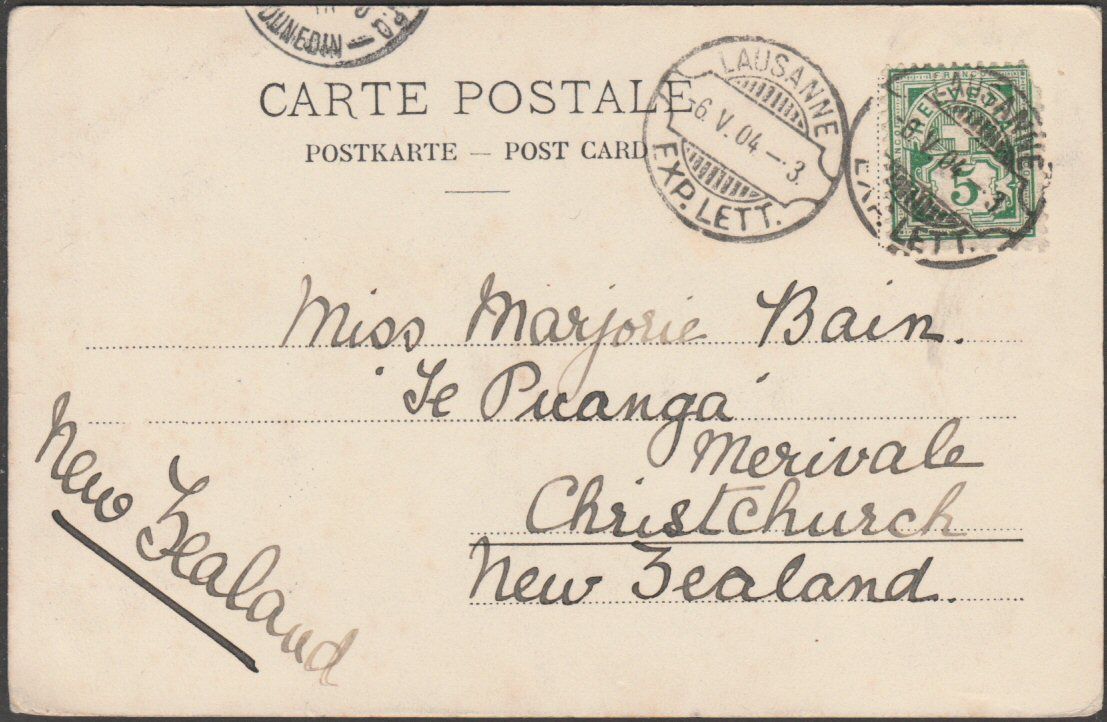 DUNEDIN
CARTE POSTALE
POSTKARTE — POST CARD
LAUSANNE
-6. V. 04 -. 3.
EXP. LETT.
FRANCO
HELVETIA
5
LAUSANNE
V. 04 -. 3
EXP. LETT.
Miss Marjorie Bain.
'Te Puanga'
Merivale
Christchurch
New Zealand.
New Zealand